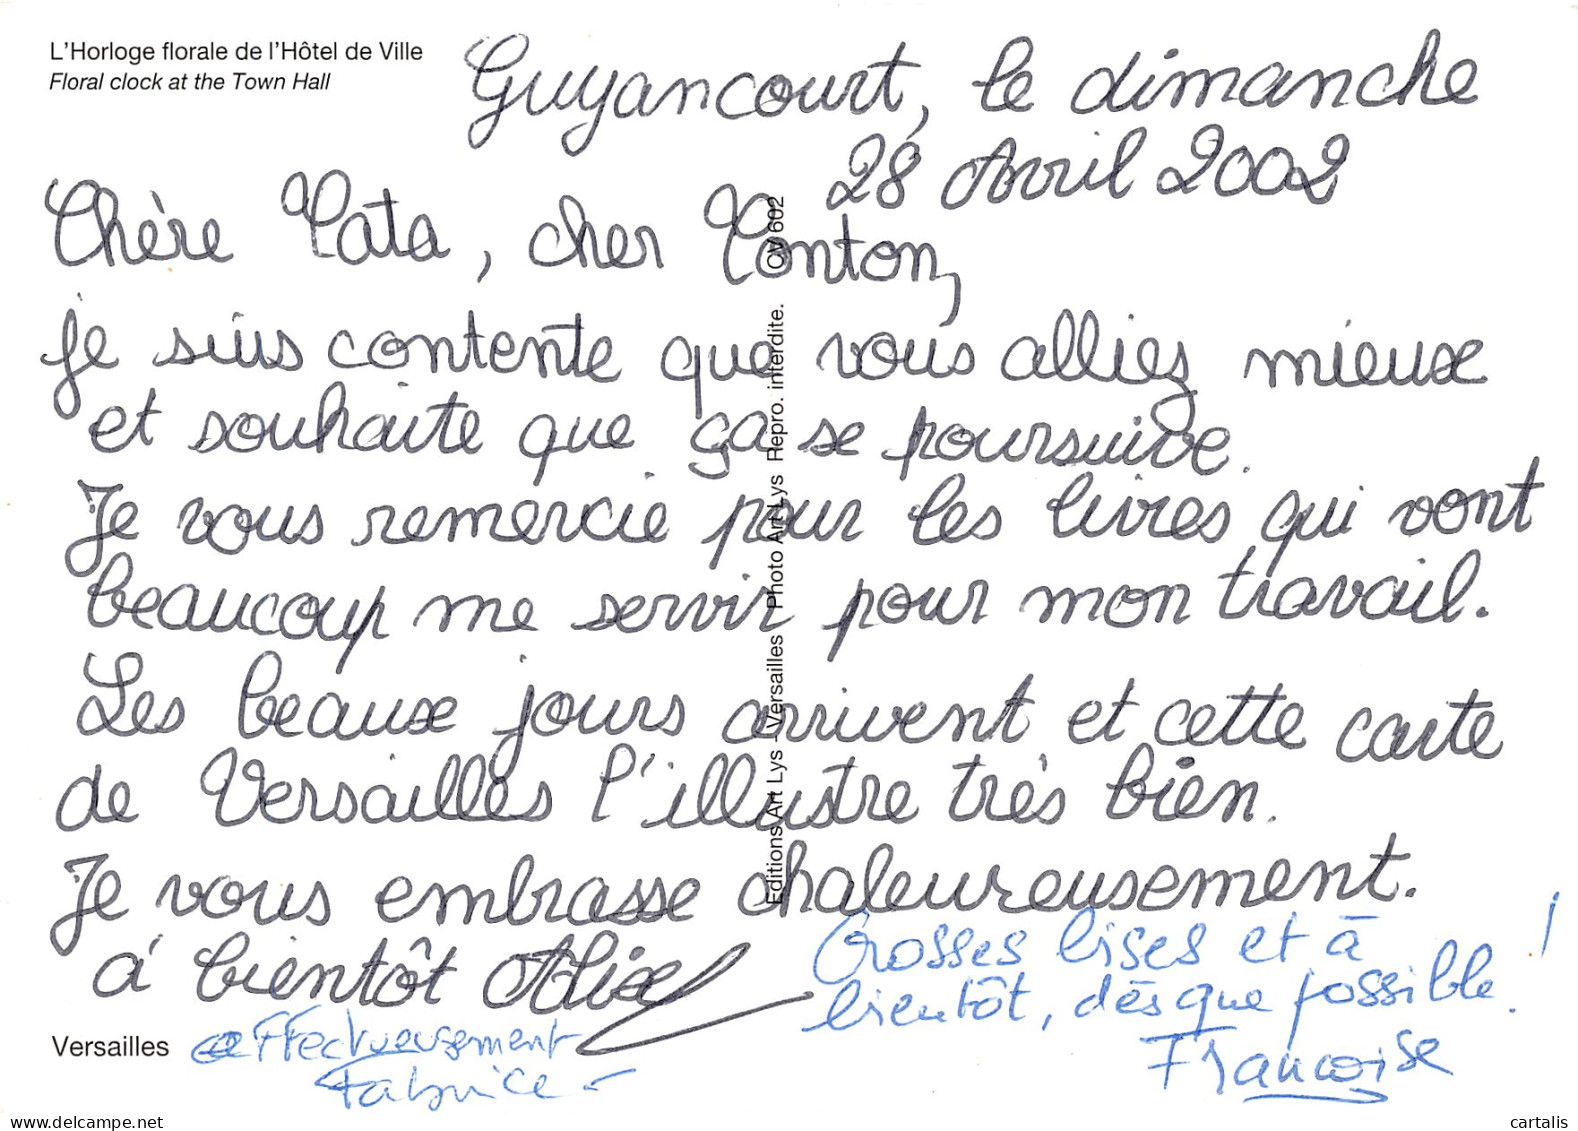 L'Horloge florale de l'Hôtel de Ville
Floral clock at the Town Hall
Guyancourt, le dimanche
28 Avril 2002
Chère Tata, cher Tonton,
je suis contente que vous alliez mieux
et souhaite que ça se poursuive.
Je vous remercie pour les livres qui vont
beaucoup me servir pour mon travail.
Les beaux jours arrivent et cette carte
de Versailles l'illustre très bien.
Je vous embrasse chaleureusement.
à bientôt Alix
Grosses bises et à
bientôt, dès que possible !
Françoise
affectueusement
Fabrice
Versailles
Editions Art Lys - Versailles Photo Art Lys Repro. interdite. CM 602
cartalis